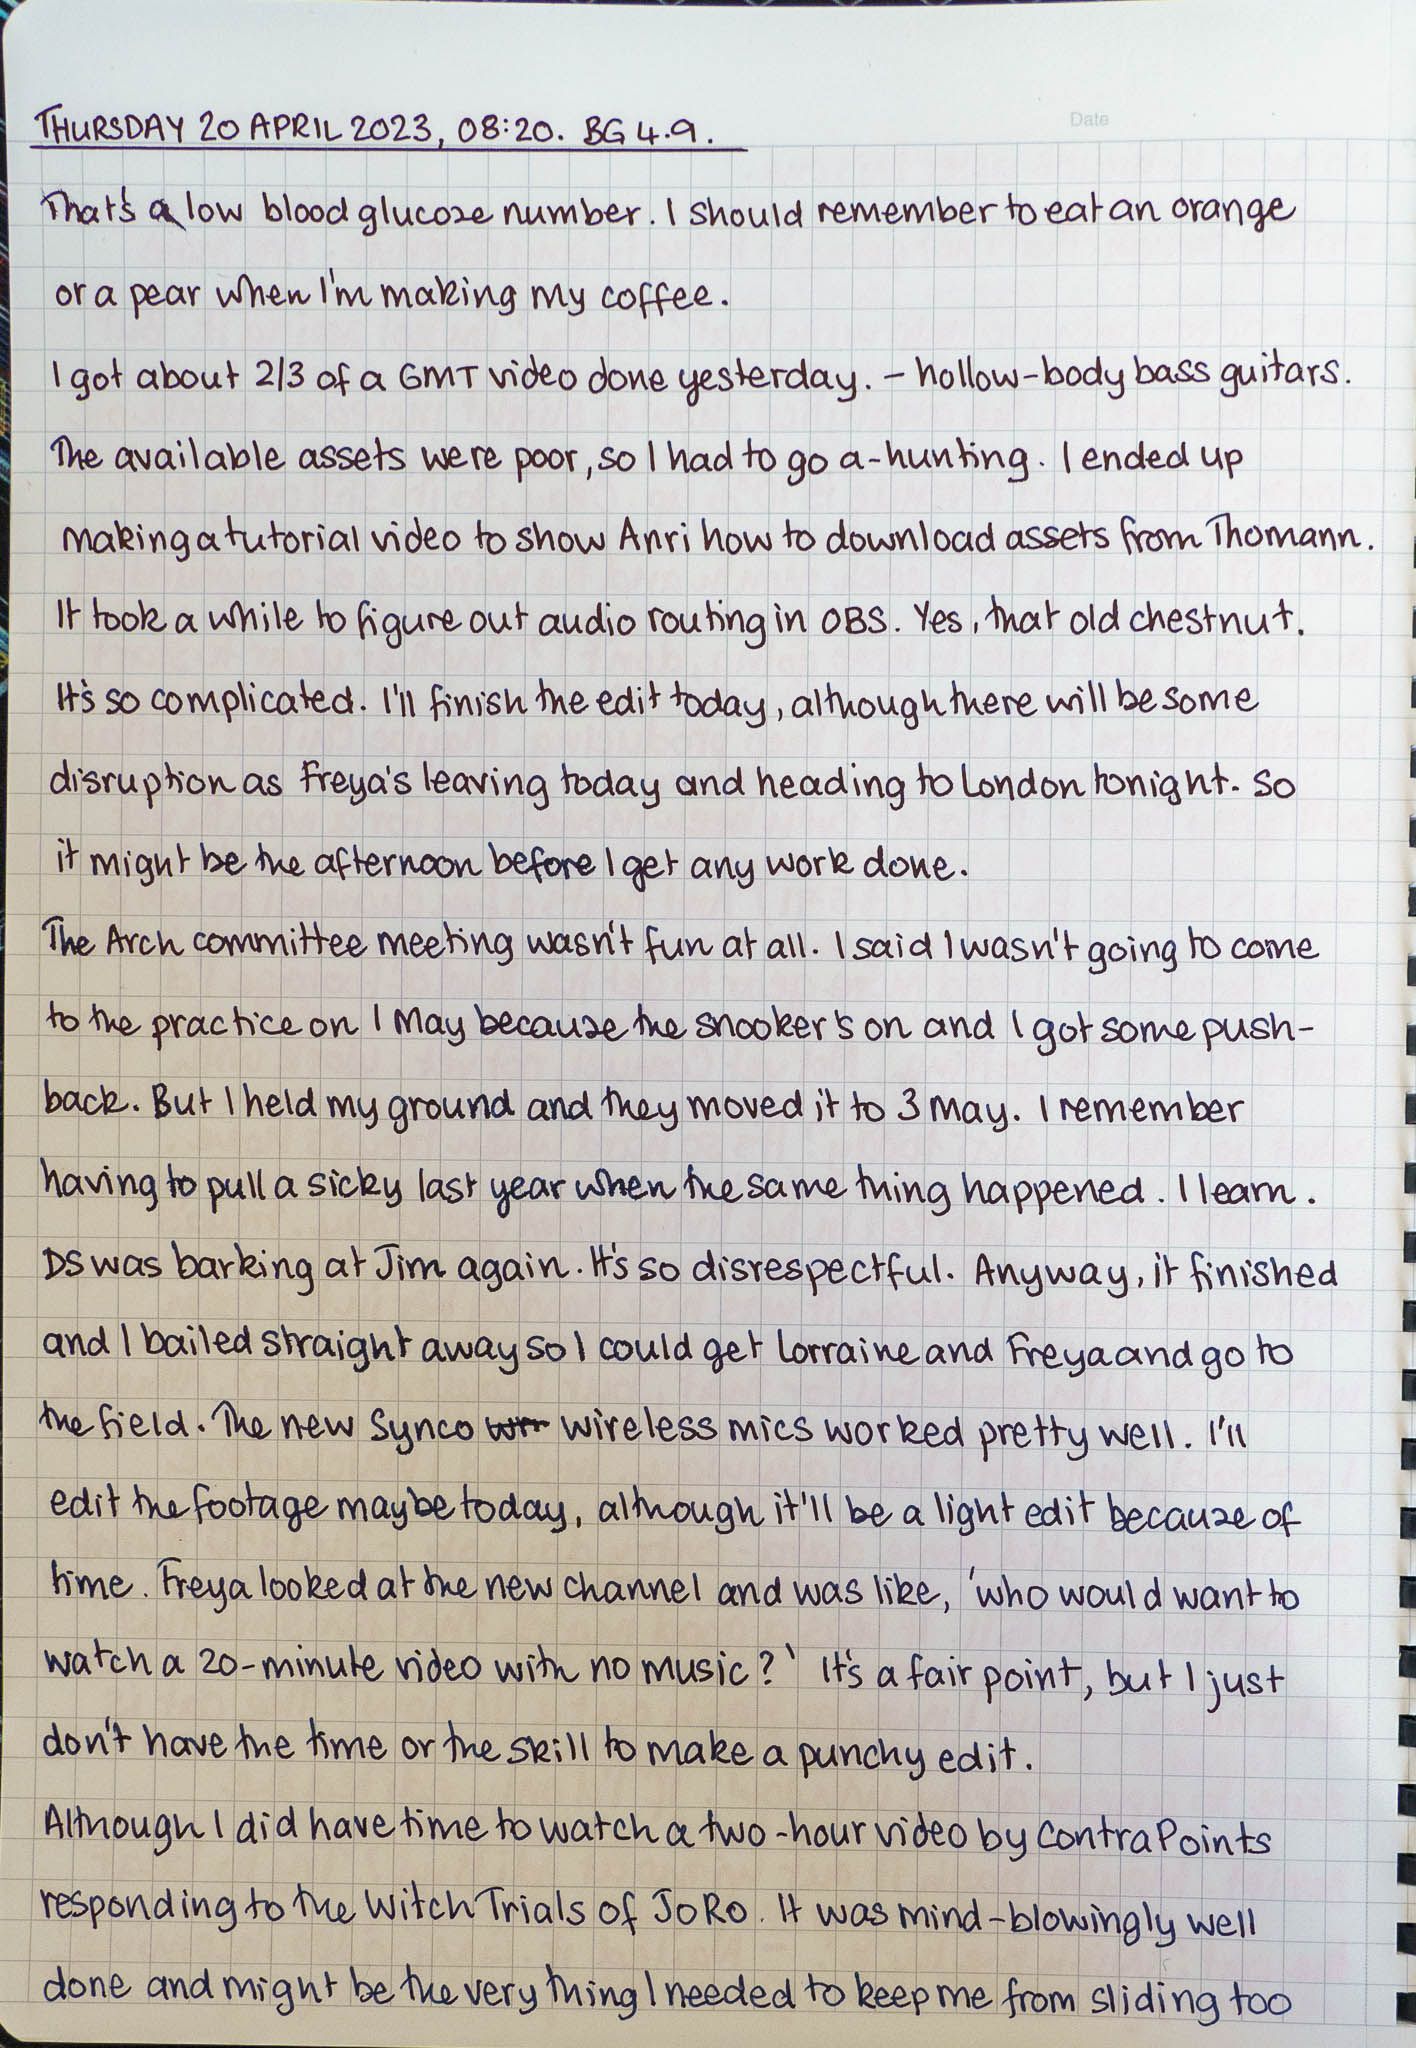 Date
THURSDAY 20 APRIL 2023, 08:20. BG 4.9.
That's a low blood glucose number. I should remember to eat an orange
or a pear when I'm making my coffee.
I got about 2/3 of a GMT video done yesterday. – hollow-body bass guitars.
The available assets were poor, so I had to go a-hunting. I ended up
making a tutorial video to show Anri how to download assets from Thomann.
It took a while to figure out audio routing in OBS. Yes, that old chestnut.
It's so complicated. I'll finish the edit today, although there will be some
disruption as Freya's leaving today and heading to London tonight. So
it might be the afternoon before I get any work done.
The Arch committee meeting wasn't fun at all. I said I wasn't going to come
to the practice on 1 May because the snooker's on and I got some push-
back. But I held my ground and they moved it to 3 May. I remember
having to pull a sicky last year when the same thing happened. I learn.
DS was barking at Jim again. It's so disrespectful. Anyway, it finished
and I bailed straight away so I could get Lorraine and Freya and go to
the field. The new Synco wireless mics worked pretty well. I'll
edit the footage maybe today, although it'll be a light edit because of
time. Freya looked at the new channel and was like, 'who would want to
watch a 20-minute video with no music?' It's a fair point, but I just
don't have the time or the skill to make a punchy edit.
Although I did have time to watch a two-hour video by ContraPoints
responding to the Witch Trials of JoRo. It was mind-blowingly well
done and might be the very thing I needed to keep me from sliding too